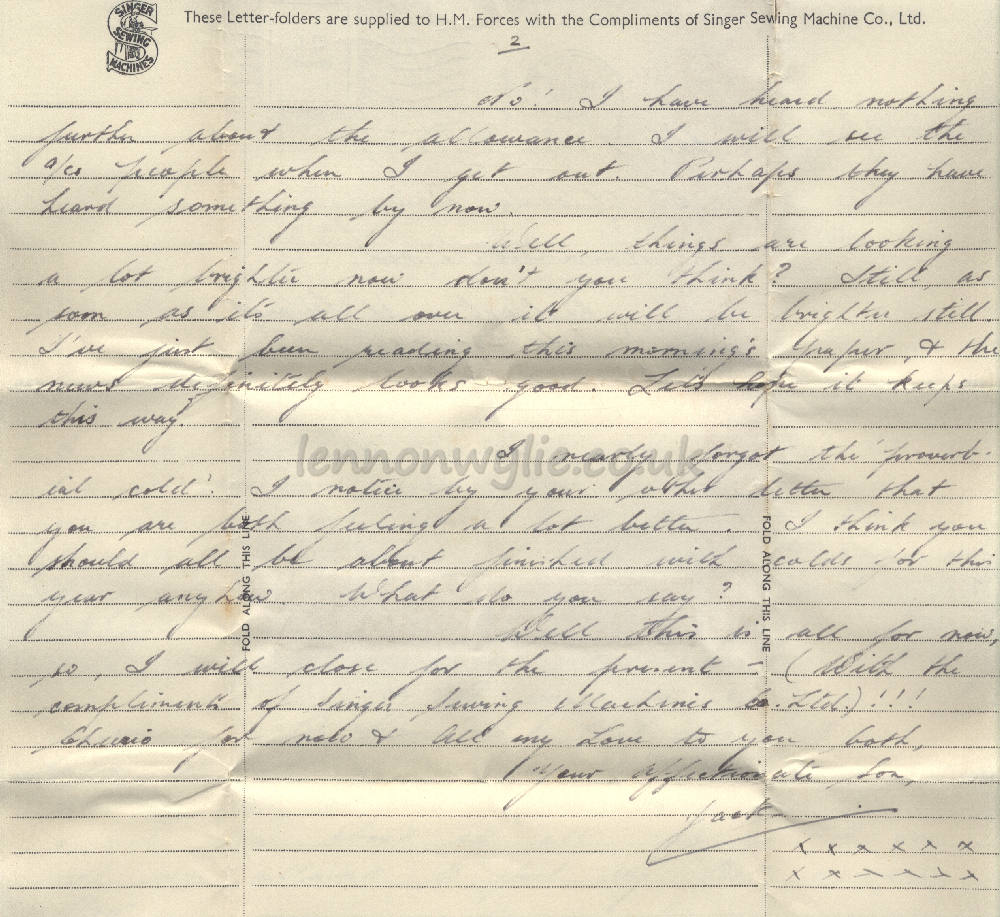 SINGER
SEWING
MACHINES
These Letter-folders are supplied to H.M. Forces with the Compliments of Singer Sewing Machine Co., Ltd.
2
No! I have heard nothing
further about the allowance. I will see the
a/cs people when I get out. Perhaps they have
heard something by now.
Well, things are looking
a lot brighter now don't you think? Still, as
soon as it's all over it will be brighter still.
I've just been reading this morning's paper, & the
news definitely looks good. Let's hope it keeps
this way.
I nearly forgot the 'proverb-
ial cold'. I notice by your other letter that
you are both feeling a lot better. I think you
should all be about finished with colds for this
year anyhow. What do you say?
Well this is all for now,
so, I will close for the present - (With the
compliments of Singer Sewing Machines Co. Ltd.)!!!
Cheerio for now & All my Love to you both,
Your Affectionate Son,
Jack
x x x x x x
x x x x x x
FOLD ALONG THIS LINE
FOLD ALONG THIS LINE
lennonwylie.co.uk